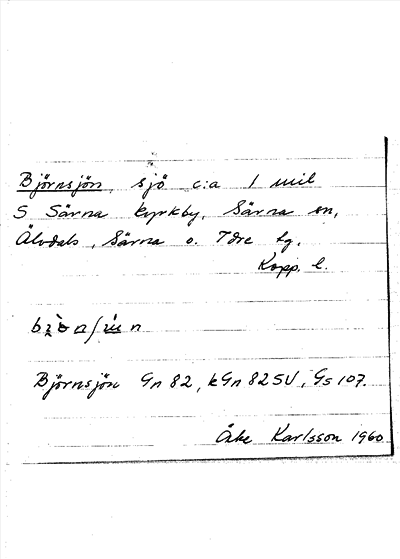 Björnsjön, sjö c:a 1 mil
S Särna kyrkby, Särna sn,
Älvdals, Särna o. Idre tg,
Kopp. l.
Björnsjön Gn 82, kGn 82 SV, Gs 107.
Åke Karlsson 1960